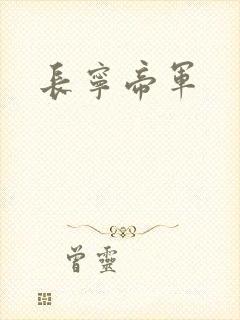 長寧帝軍
曾靈